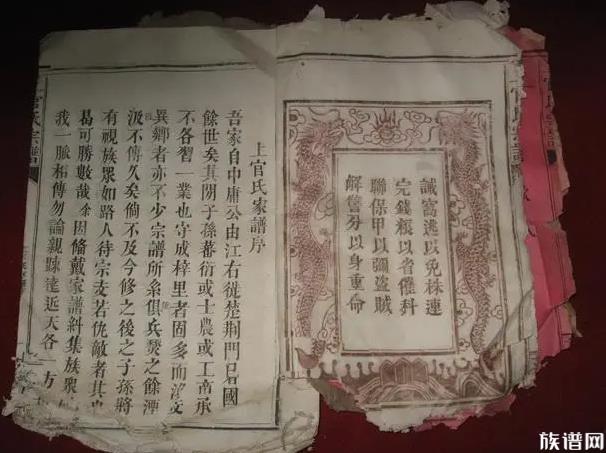 官氏宗譜
誡窩逃以免株連
完錢粮以省催科
聯保甲以彌盜賊
解讐忿以身重命
上官氏家譜序
吾家自中庸公由江右徙楚荆門已國
餘世矣其閒子孫蕃衍或士農或工商承
不各習一業也守成梓里者固多而
異鄉者亦不少宗譜所系俱兵焚之餘湮
汲不傳久矣倘不及今修之後之子孫將
有視族眾如路人待宗支若仇敵者其
曷可勝數哉余因偹戴家譜糾集族衆
我一脈相傳勿論親踈逺近天各一方
官氏宗譜
族谱网